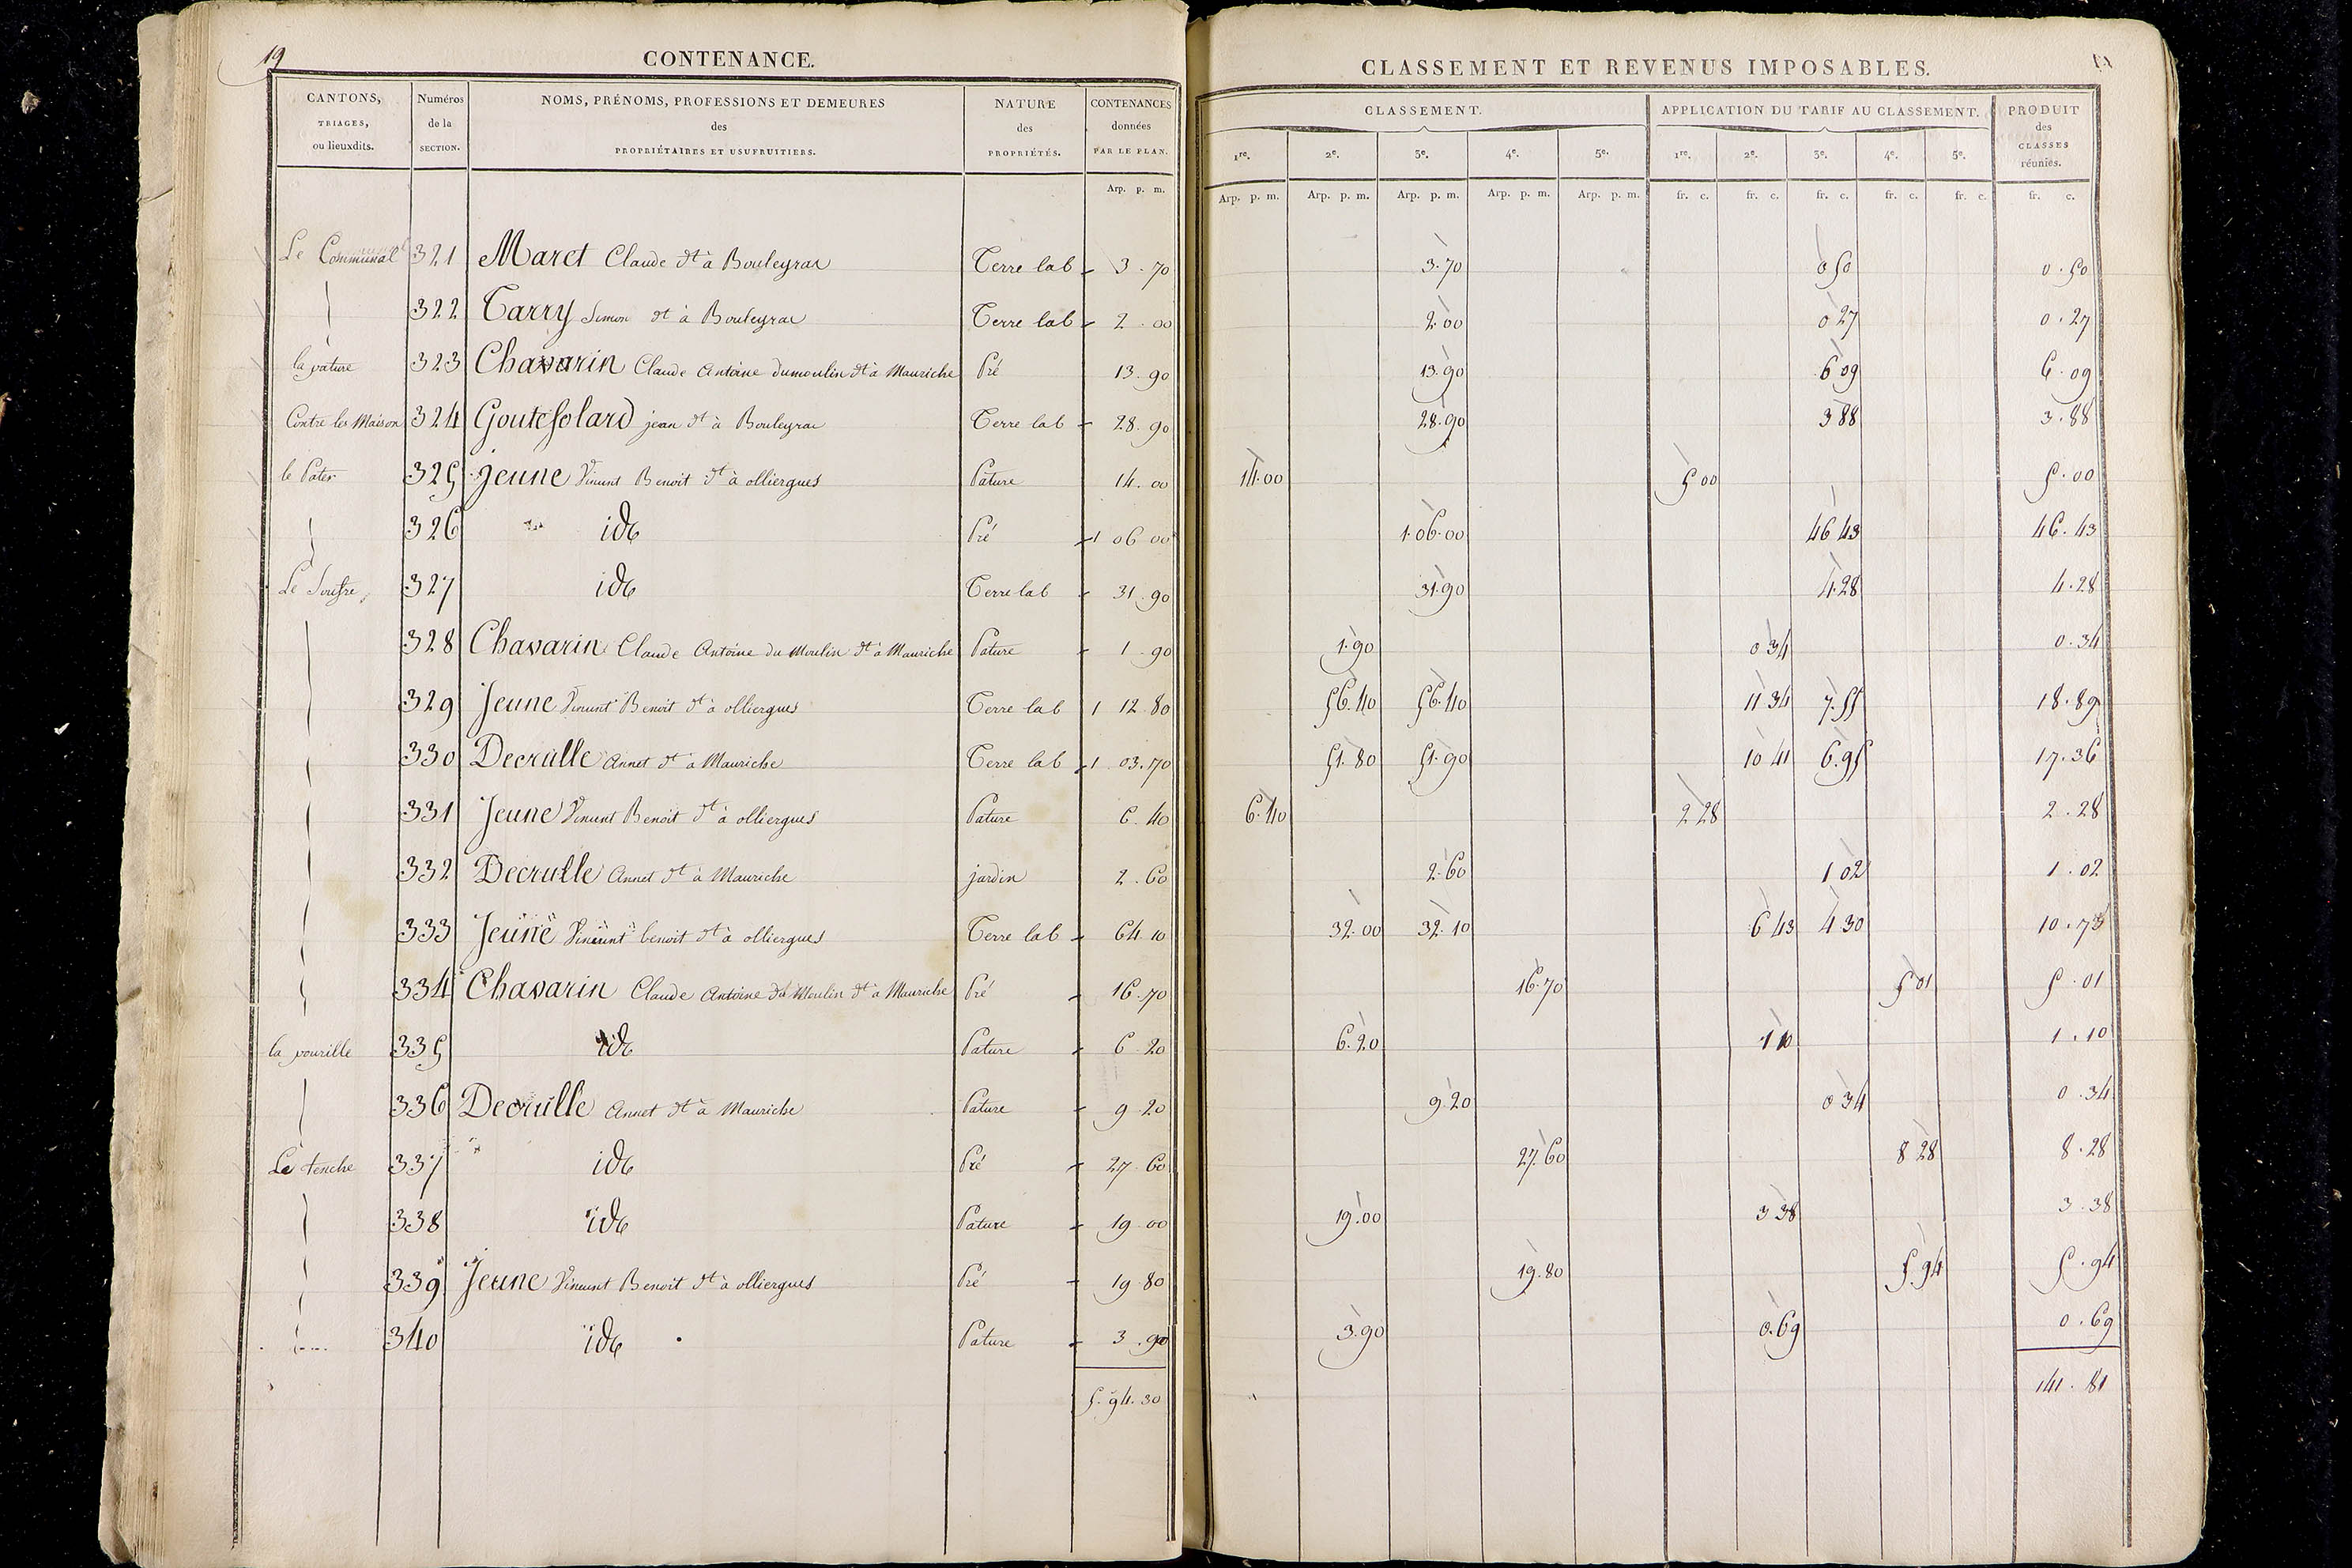 19
CONTENANCE.
CANTONS, TRIAGES, ou lieuxdits.
Numéros de la SECTION.
NOMS, PRÉNOMS, PROFESSIONS ET DEMEURES des PROPRIÉTAIRES ET USUFRUITIERS.
NATURE des PROPRIÉTÉS.
CONTENANCES données PAR LE PLAN.
Arp. p. m.
CLASSEMENT ET REVENUS IMPOSABLES.
CLASSEMENT.
APPLICATION DU TARIF AU CLASSEMENT.
PRODUIT des CLASSES réunies.
1re. 2e. 3e. 4e. 5e. 1re. 2e. 3e. 4e. 5e.
Arp. p. m. Arp. p. m. Arp. p. m. Arp. p. m. Arp. p. m. fr. c. fr. c. fr. c. fr. c. fr. c. fr. c.
Le Communal 321 Maret Claude dt à Bouleyras Terre lab 3.70 3.70 0 50 0.50
322 Tarry Simon dt à Bouleyrac Terre lab 2.00 2.00 0 27 0.27
la pature 323 Chavarin Claude Antoine dumoulin dt à Mauriche Pré 13.90 13.90 6 09 6.09
Contre les Maison 324 Goutesolard jean dt à Bouleyrac Terre lab 28.90 28.90 3 88 3.88
le Pater 325 Jeune Vincent Benoit dt à olliergues Pature 14.00 14.00 5 00 5.00
326 ide Pré 1 06 00 1.06.00 46 43 46.43
Le 327 ide Terre lab 31.90 31.90 4.28 4.28
328 Chavarin Claude Antoine du Moulin dt à Mauriche Pature 1.90 1.90 0 34 0.34
329 Jeune Vincent Benoit dt à olliergues Terre lab 1 12 80 56.40 56.40 11 34 7.55 18.89
330 Decrulle Annet dt à Mauriche Terre lab 1 03.70 51.80 51.90 10 41 6.95 17.36
331 Jeune Vincent Benoit dt à olliergues Pature 6.40 6.40 2 28 2.28
332 Decrulle Annet dt à Mauriche jardin 2.60 2.60 1 02 1.02
333 Jeune Vincent benoit dt à olliergues Terre lab 64 10 32.00 32.10 6 43 4 30 10.73
334 Chavarin Claude Antoine du Moulin dt à Mauriche Pré 16.70 16.70 5 01 5.01
la pourille 335 ide Pature 6 20 6.20 1 10 1.10
336 Decrulle Annet dt à Mauriche Pature 9 20 9.20 0 34 0.34
Le tenche 337 ide Pré 27.60 27.60 8 28 8.28
338 ide Pature 19.00 19.00 3 38 3.38
339 Jeune Vincent Benoit dt à olliergues Pré 19 80 19.80 5.94 5.94
340 ide Pature 3.90 3.90 0.69 0.69
5.94.30 141.81